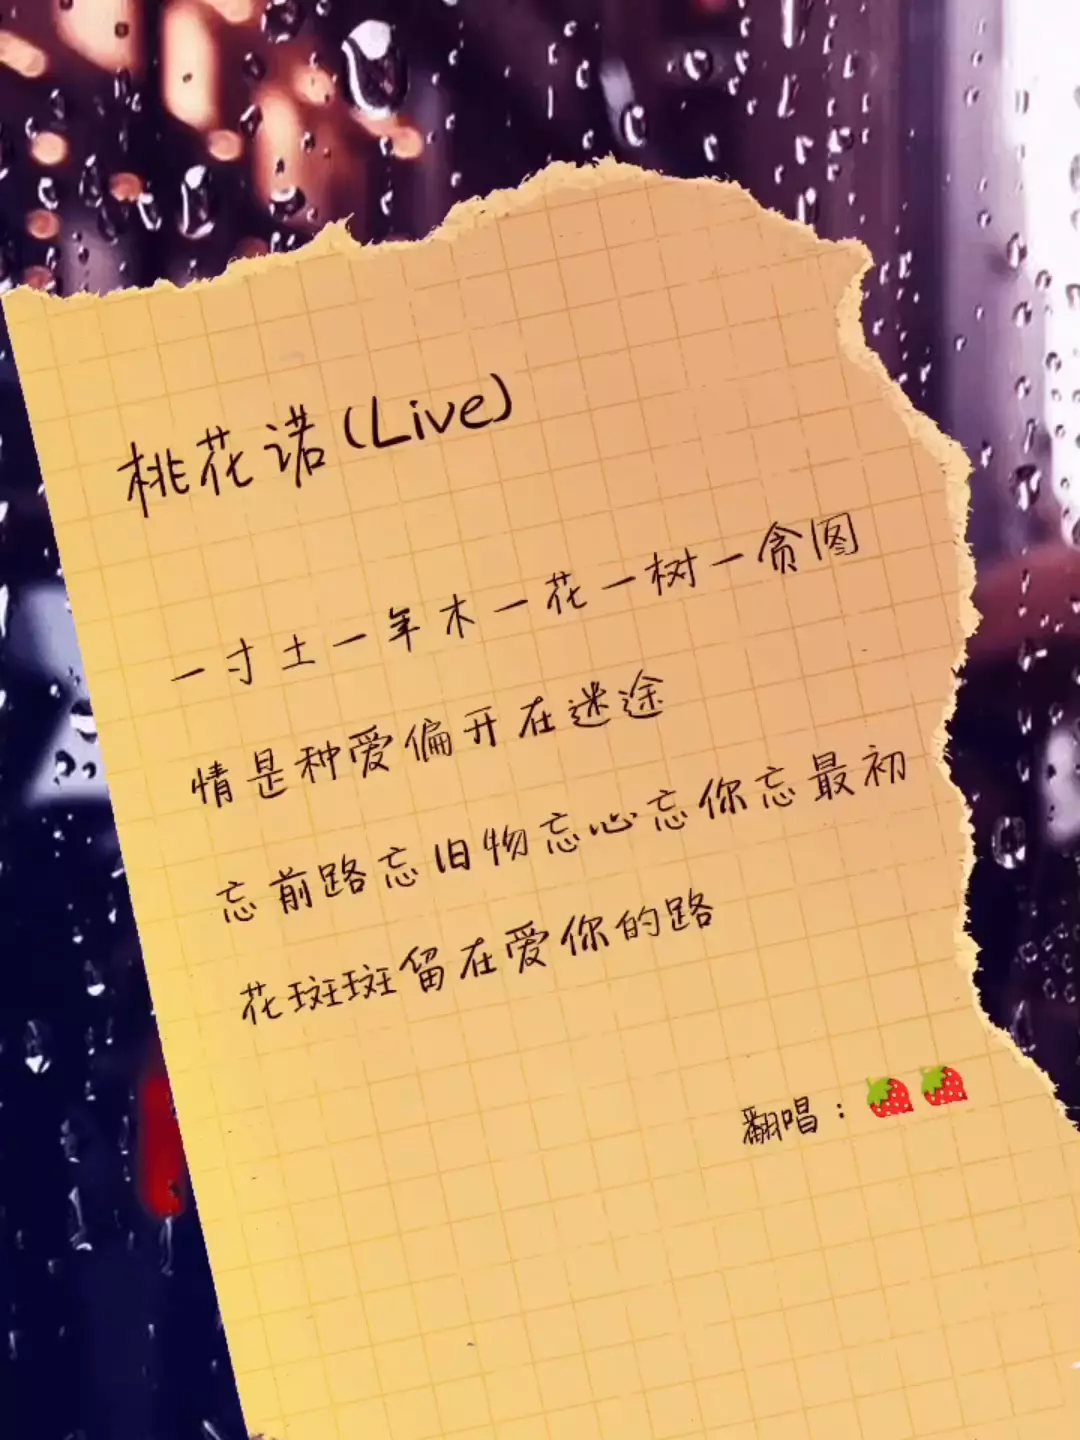 桃花诺(Live)
一寸土一年木一花一树一贪图
情是种爱偏开在迷途
忘前路忘旧物忘心忘你忘最初
花斑斑留在爱你的路
翻唱：🍓🍓